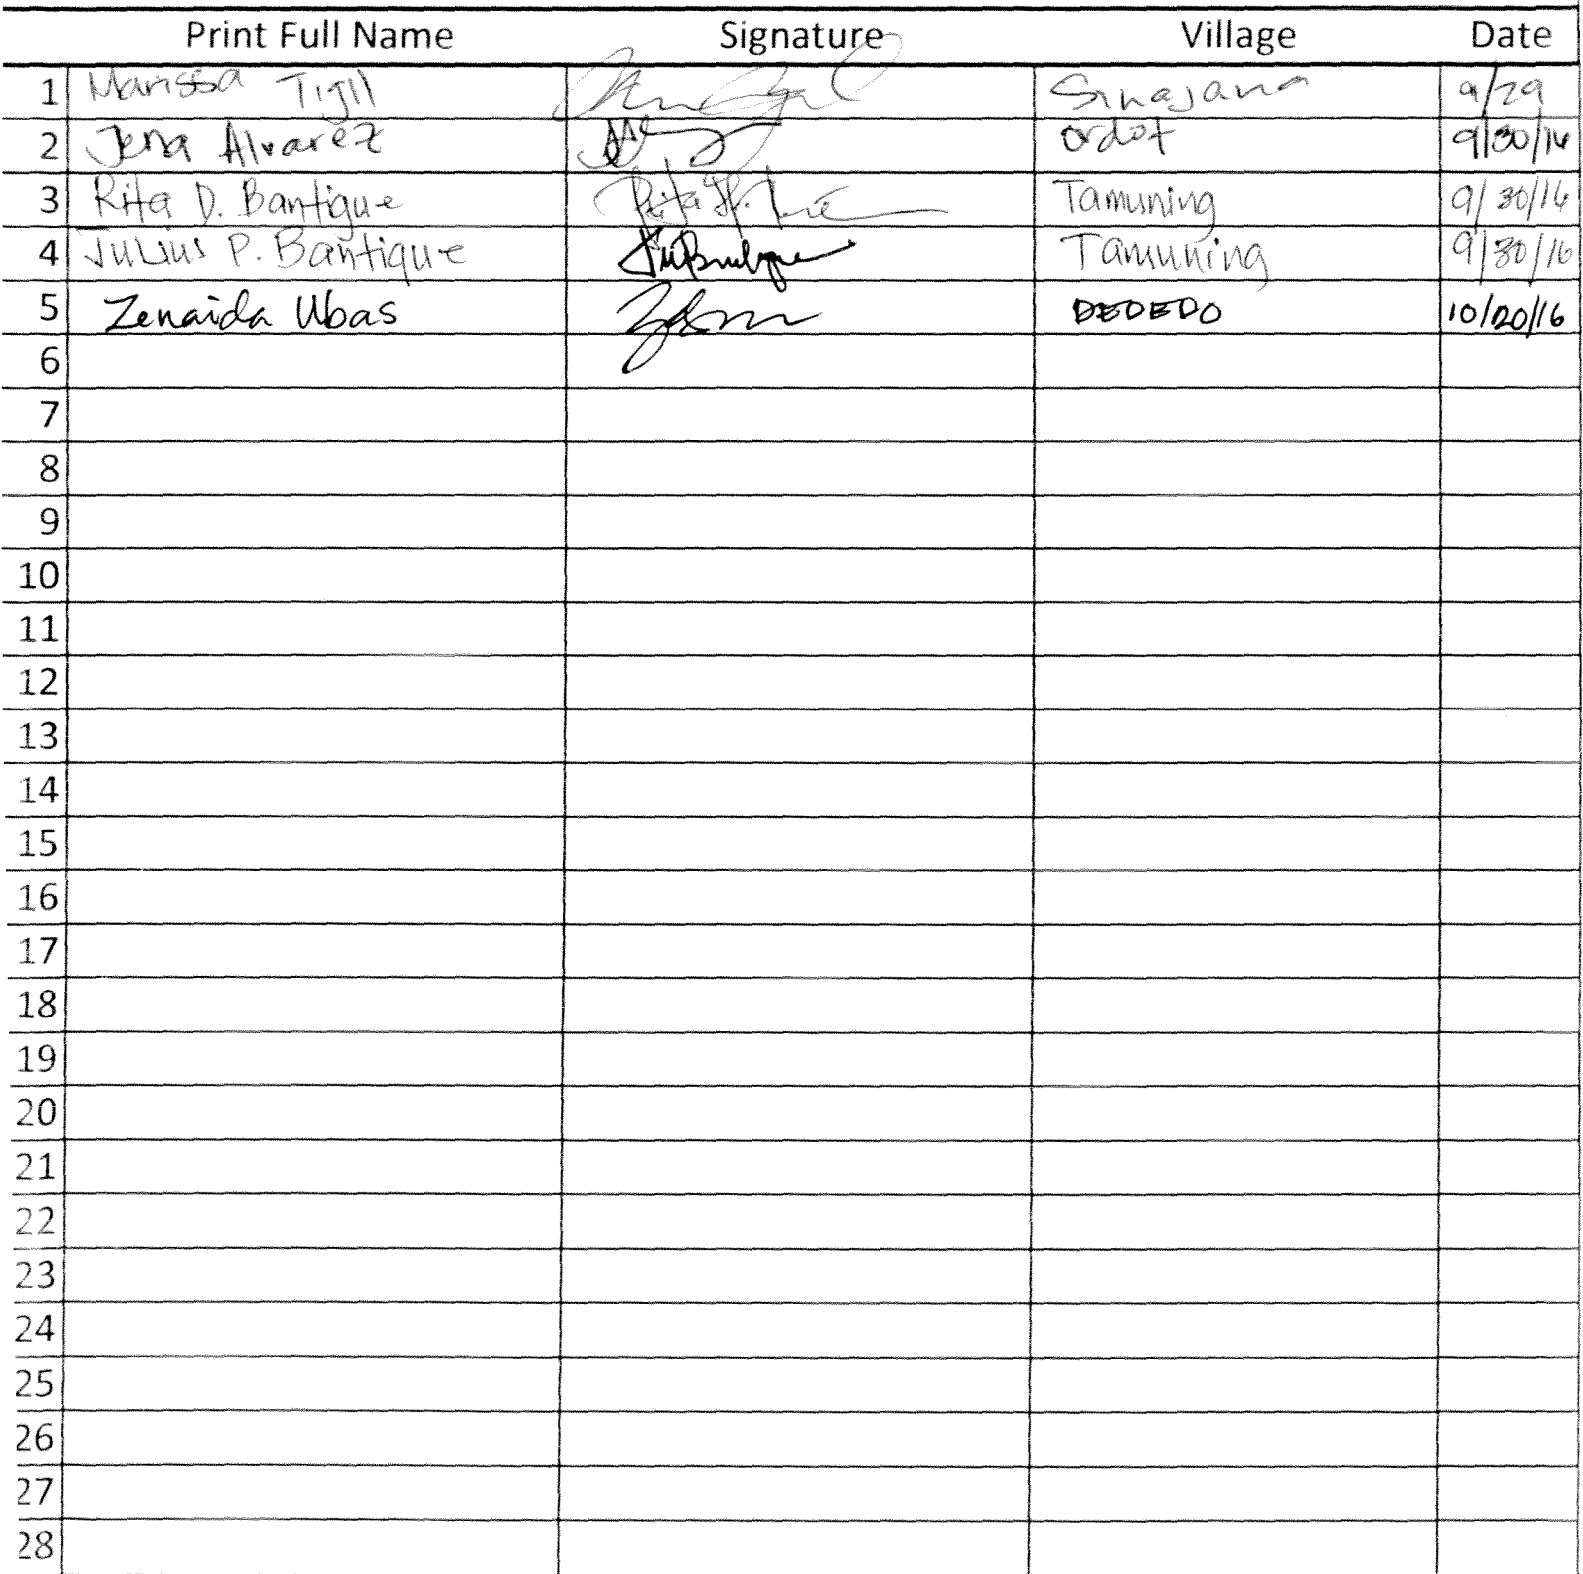 Print Full Name Signature Village Date
1 Marissa Tigll Sinajana 9/29
2 Jena Alvarez ordot 9/30/16
3 Rita D. Bantigue Tamuning 9/30/16
4 Julius P. Bantique Tamuning 9/30/16
5 Zenaida Ubas DEDEDO 10/20/16
6
7
8
9
10
11
12
13
14
15
16
17
18
19
20
21
22
23
24
25
26
27
28